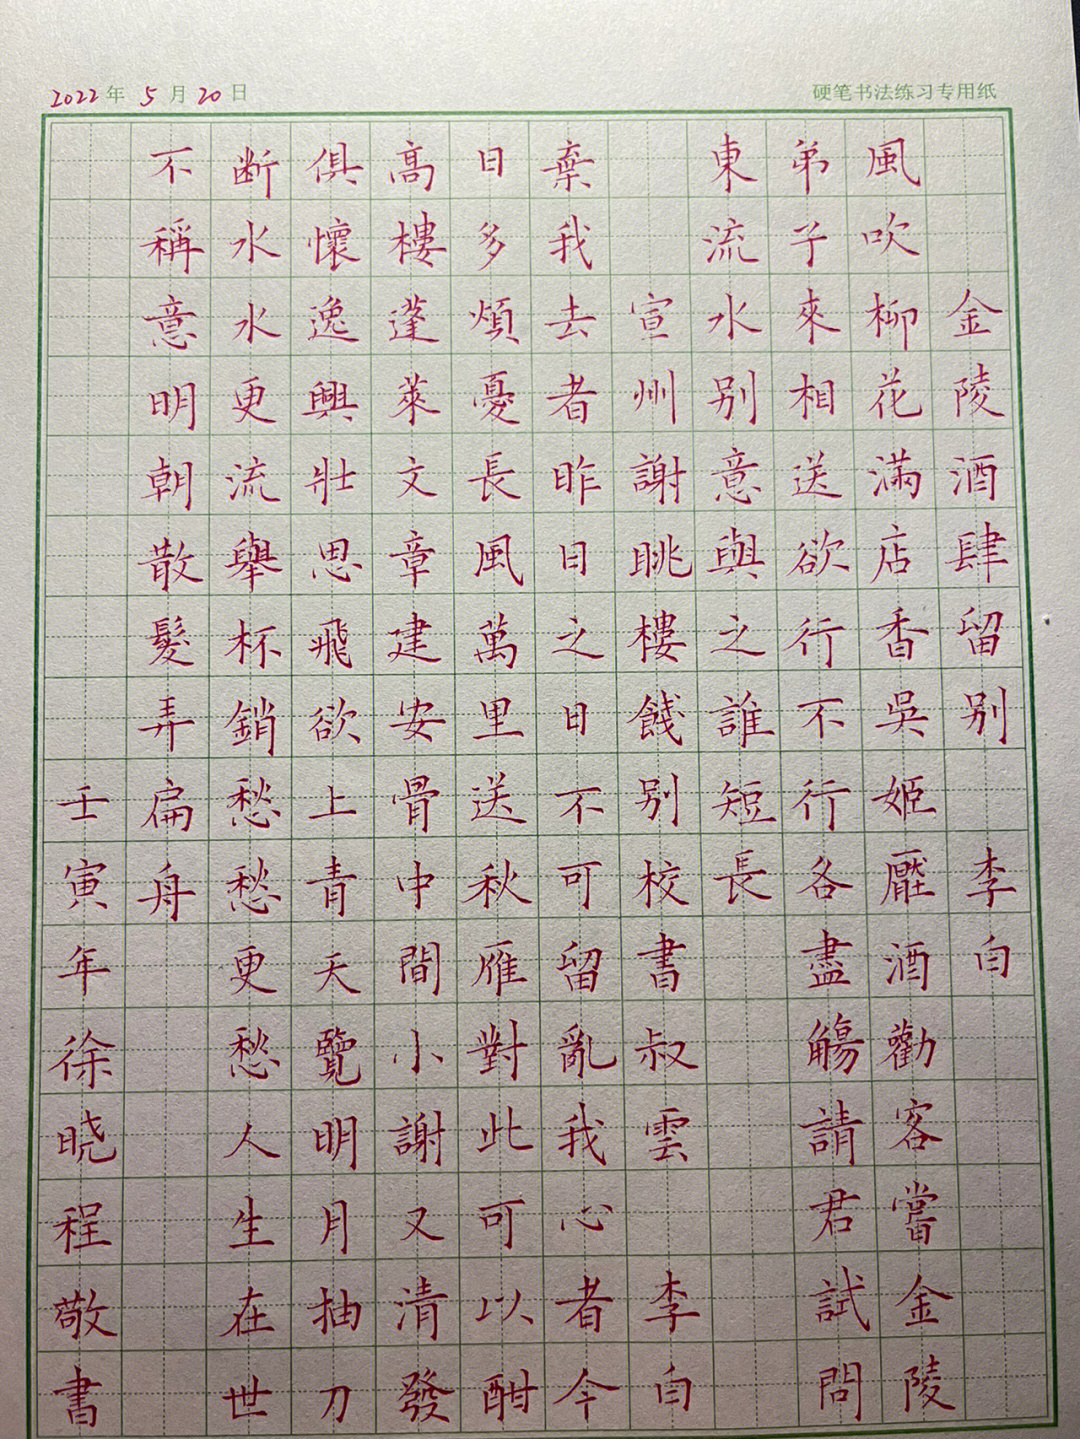 2022年5月20日
硬笔书法练习专用纸
金陵酒肆留别 李白
風吹柳花滿店香吳姬壓酒勸客嘗金陵
弟子來相送欲行不行各盡觴請君試問
東流水别意與之誰短長
宣州謝眺樓餞别校書叔雲 李白
棄我去者昨日之日不可留亂我心者今
日多煩憂長風萬里送秋雁對此可以酣
高樓蓬萊文章建安骨中間小謝又清發
俱懷逸興壯思飛欲上青天覽明月抽刀
断水水更流舉杯銷愁愁更愁人生在世
不稱意明朝散髮弄扁舟
壬寅年徐晓程敬書